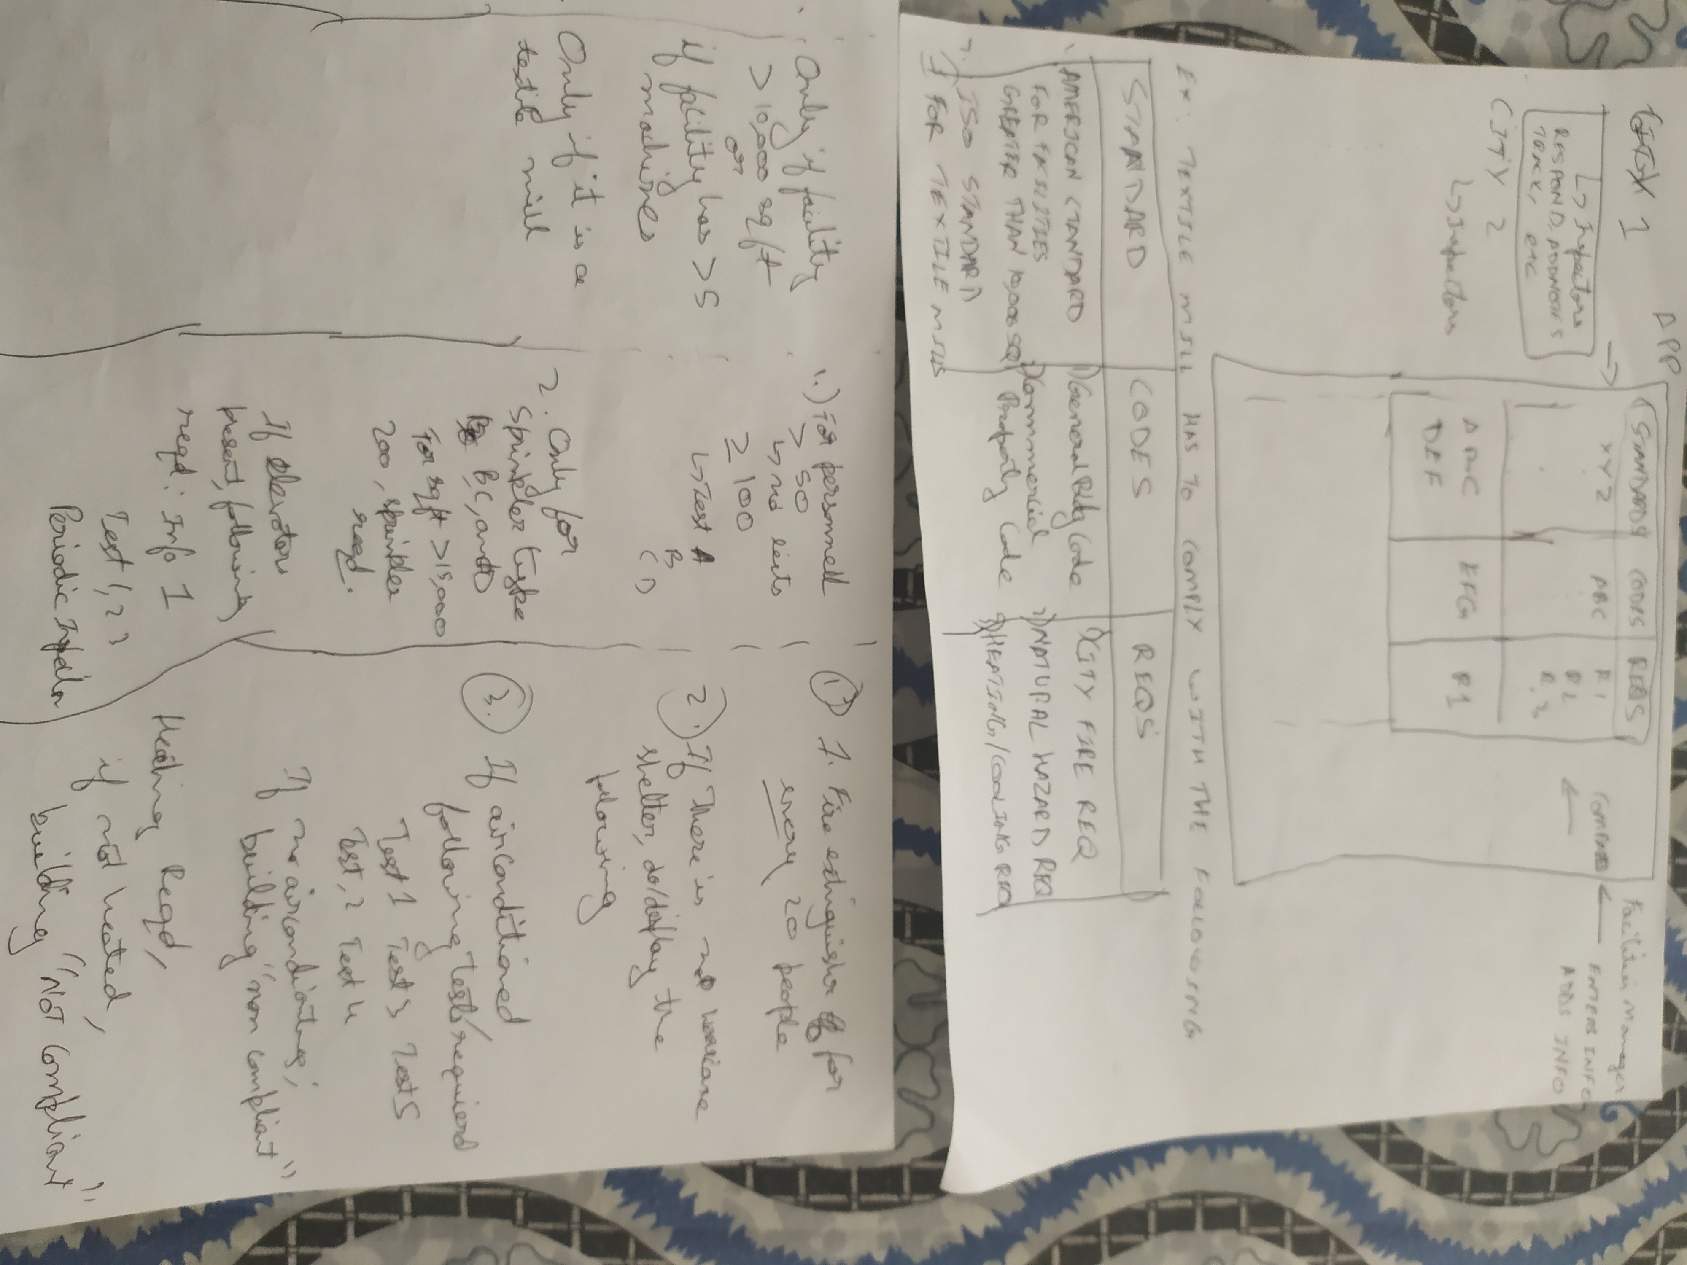 CITY 1
↳ Inspectors
RESPOND, ADDNOTES
TRACK, etc
CITY 2
↳ Inspectors
APP
STANDARDS CODES REQS
XYZ ABC R1
R2
R.3
ABC EFG R1
DEF
COMPARED
Facilities Manager
ENTERS INFO
ADDS INFO
EX: TEXTILE MILL HAS TO COMPLY WITH THE FOLLOWING
STANDARD CODES REQS
AMERICAN STANDARD
FOR FACILITIES
GREATER THAN 10,000 SQ
ISO STANDARD
FOR TEXTILE MILLS
1) General Bldg Code
2) Commercial
Property Code
1) CITY FIRE REQ
2) NATURAL HAZARD REQ
3) HEATING/COOLING REQ
Only if facility
> 10,000 sq ft
or
if facility has > 5
machines
Only if it is a
textile mill
1.) For personnell
> 50
↳ no tests
≥ 100
↳ Test A
B
C D
2. Only for
Sprinkler type
B, C, and D
For sqft > 15,000
200, sprinkler
reqd.
If elevators
present, following
reqd: Info 1
Test 1, 2 3
Periodic
1) 1. Fire extinguisher for
every 20 people
2.) If there is no
shelter, do/display the
following
3. If airconditioned,
following tests required
Test 1 Test 3 Test 5
Test, 2 Test 4
If no airconditioning;
building "non compliant"
Heating Reqd,
if not heated,
building "NOT compliant"